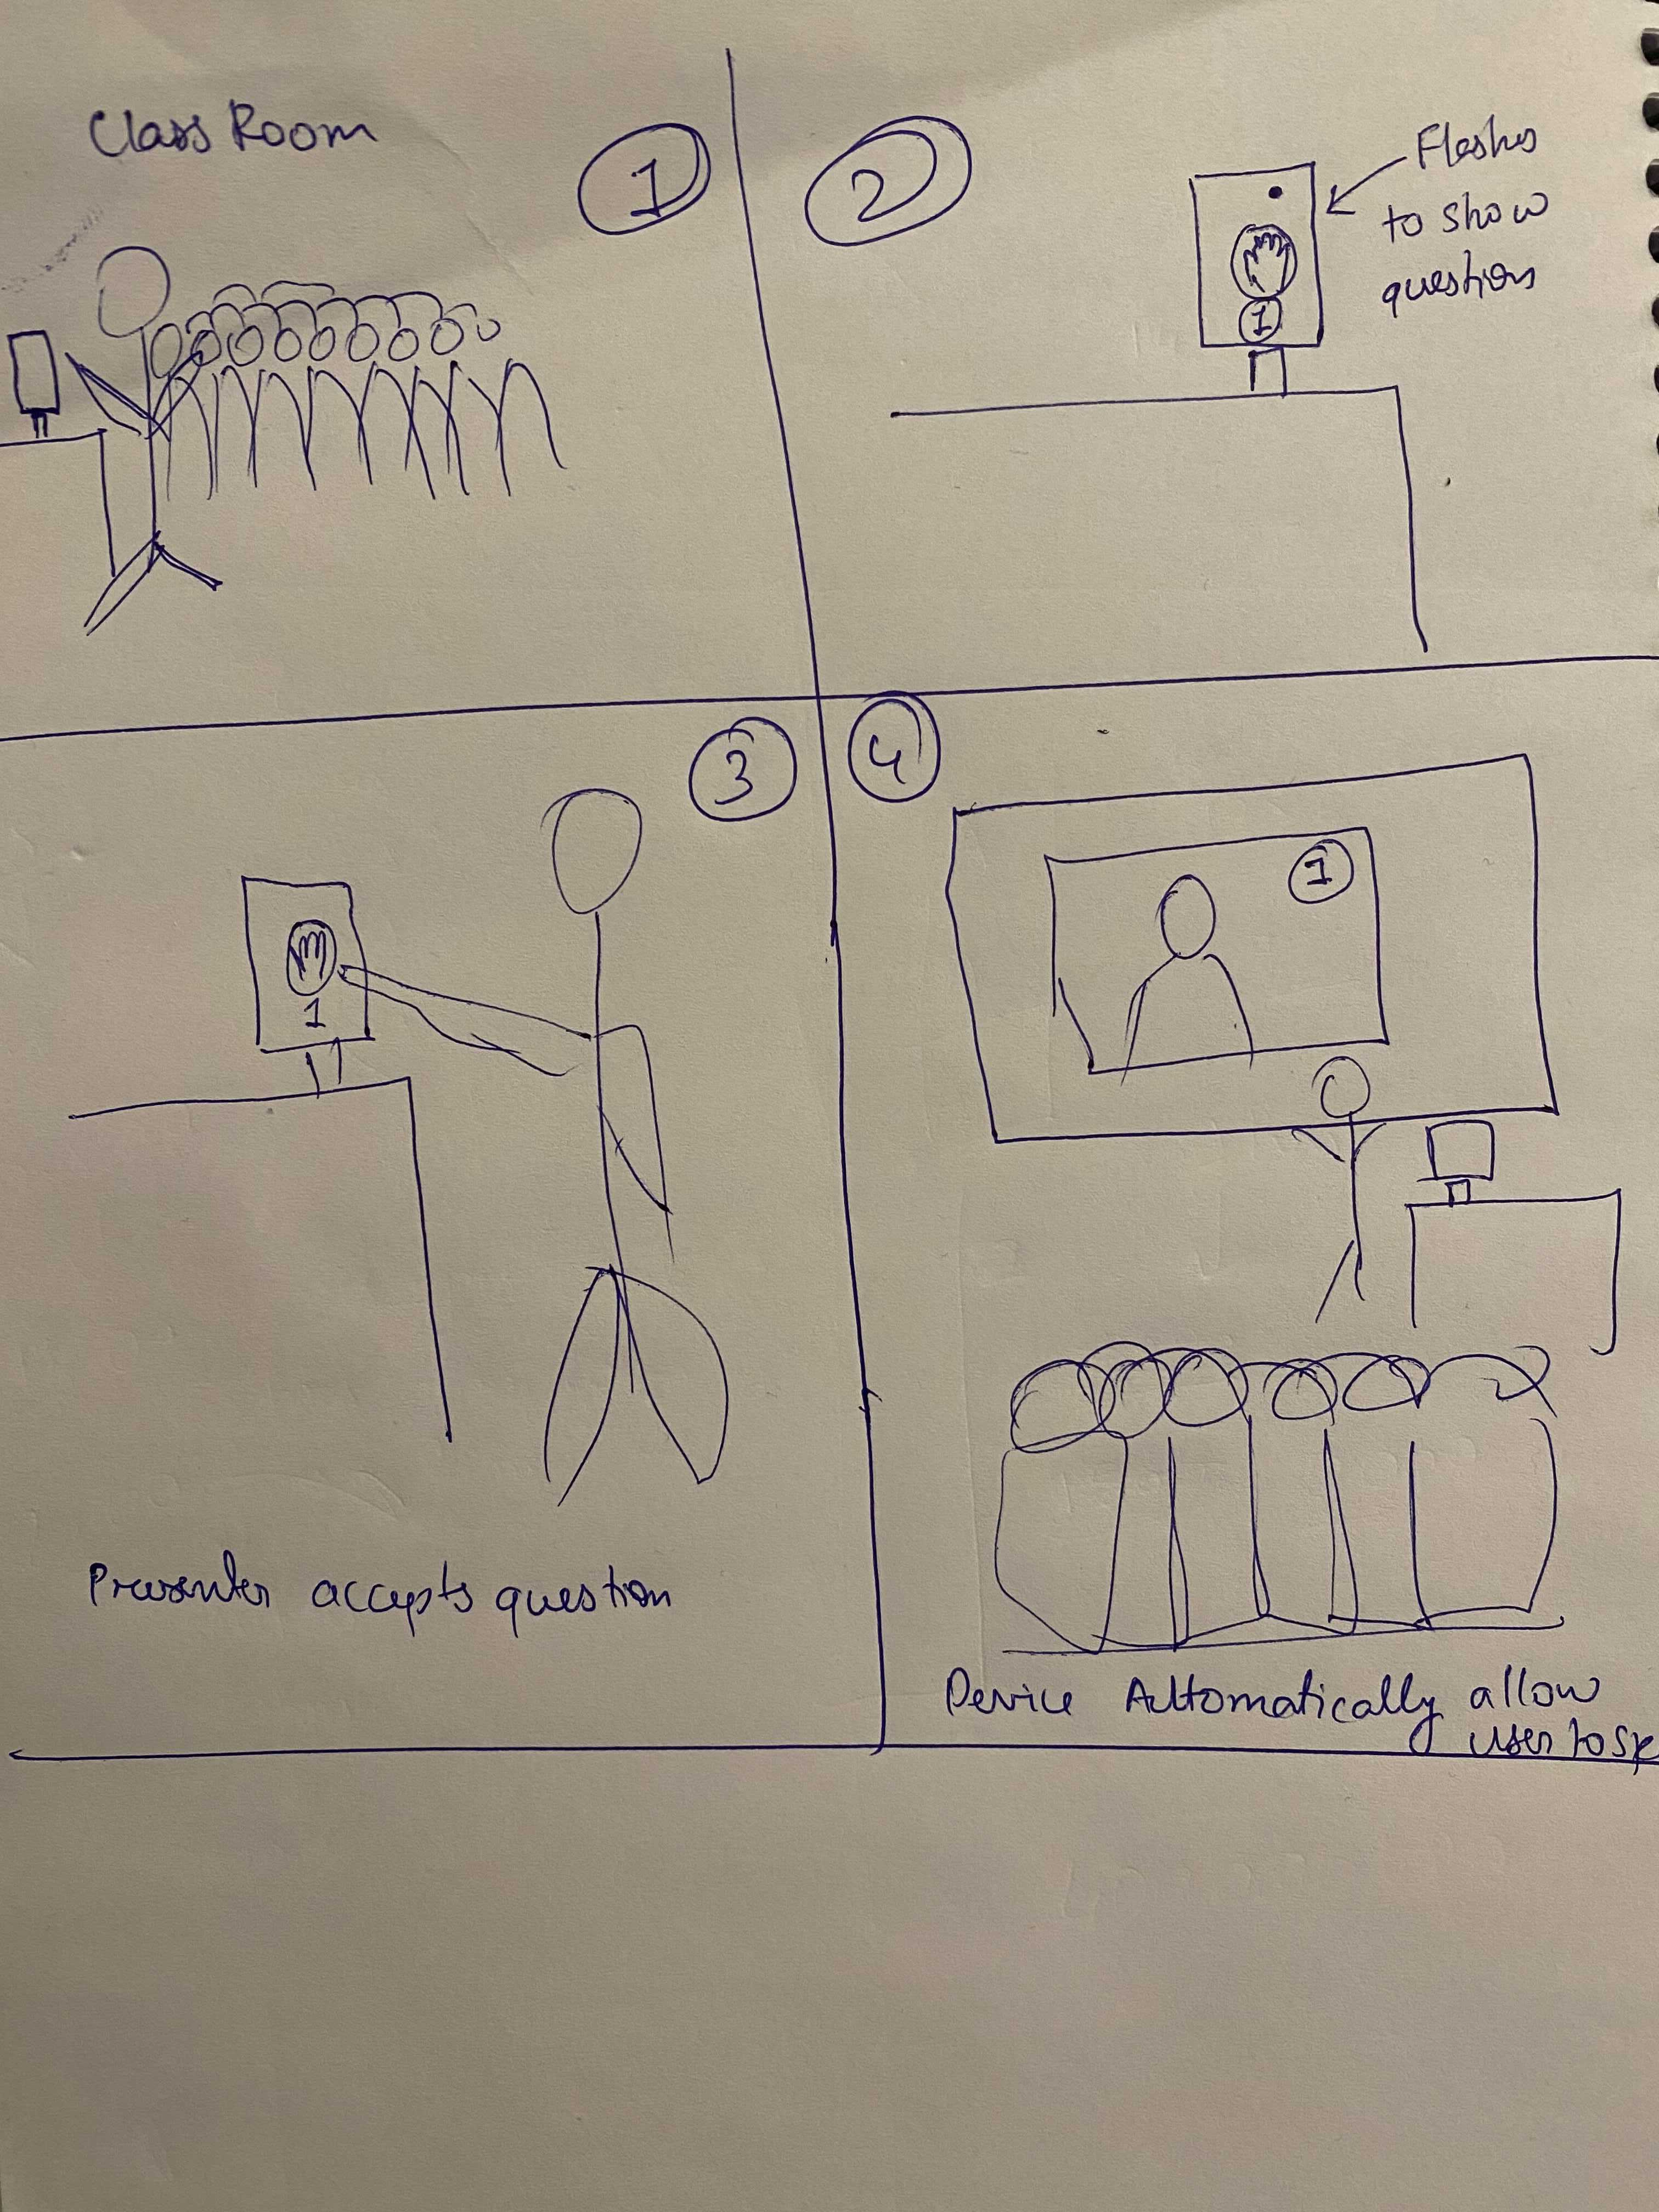 Class Room
1
2
Flashes
to show
questions
1
3
1
Presenter accepts question
4
1
Device Automatically allow
user to